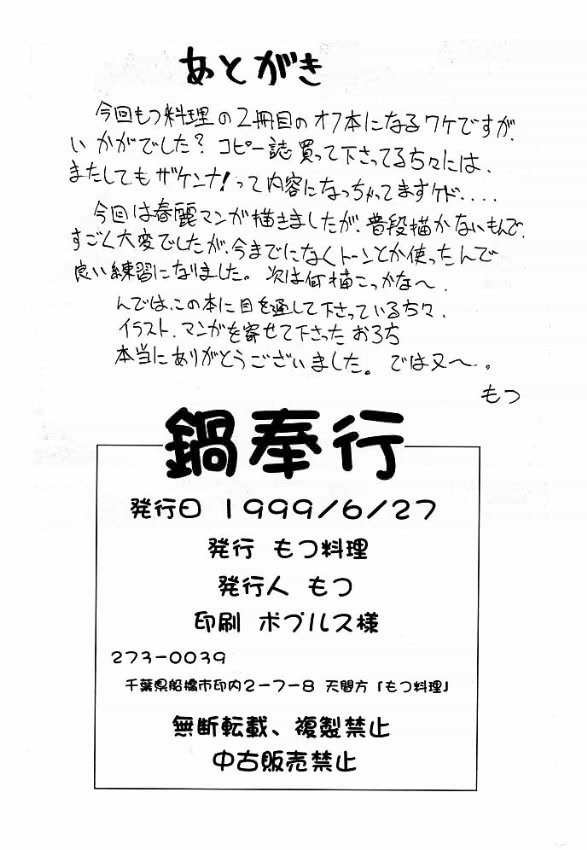 あとがき
今回もつ料理の2冊目のオフ本になるワケですが、
いかがでした？ コピー誌買って下さってる方々には、
またしてもザケンナ！って内容になっちゃってますケド....
今回は春麗マンガ描きましたが、普段描かないもんで、
すごく大変でしたが、今までになくトーンとか使ったんで
良い練習になりました。次は何描こっかな〜、
んでは、この本に目を通して下さっている方々、
イラスト、マンガを寄せて下さった おろち
本当にありがとうございました。では又〜。
もつ
鍋奉行
発行日 1999/6/27
発行 もつ料理
発行人 もつ
印刷 ポプルス様
273-0039
千葉県船橋市印内2-7-8 天間方「もつ料理」
無断転載、複製禁止
中古販売禁止